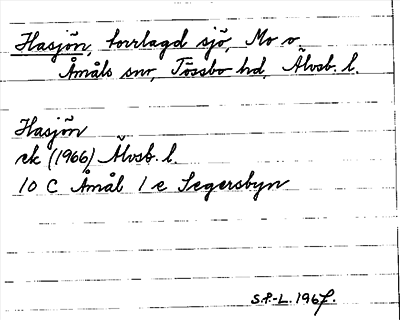 Hasjön, torrlagd sjö, Mo o.
Åmåls snr, Tössbo hd, Älvsb. l.
Hasjön
ek (1966) Älvsb. l.
10 C Åmål 1 e Segersbyn
S.P.-L. 1967.